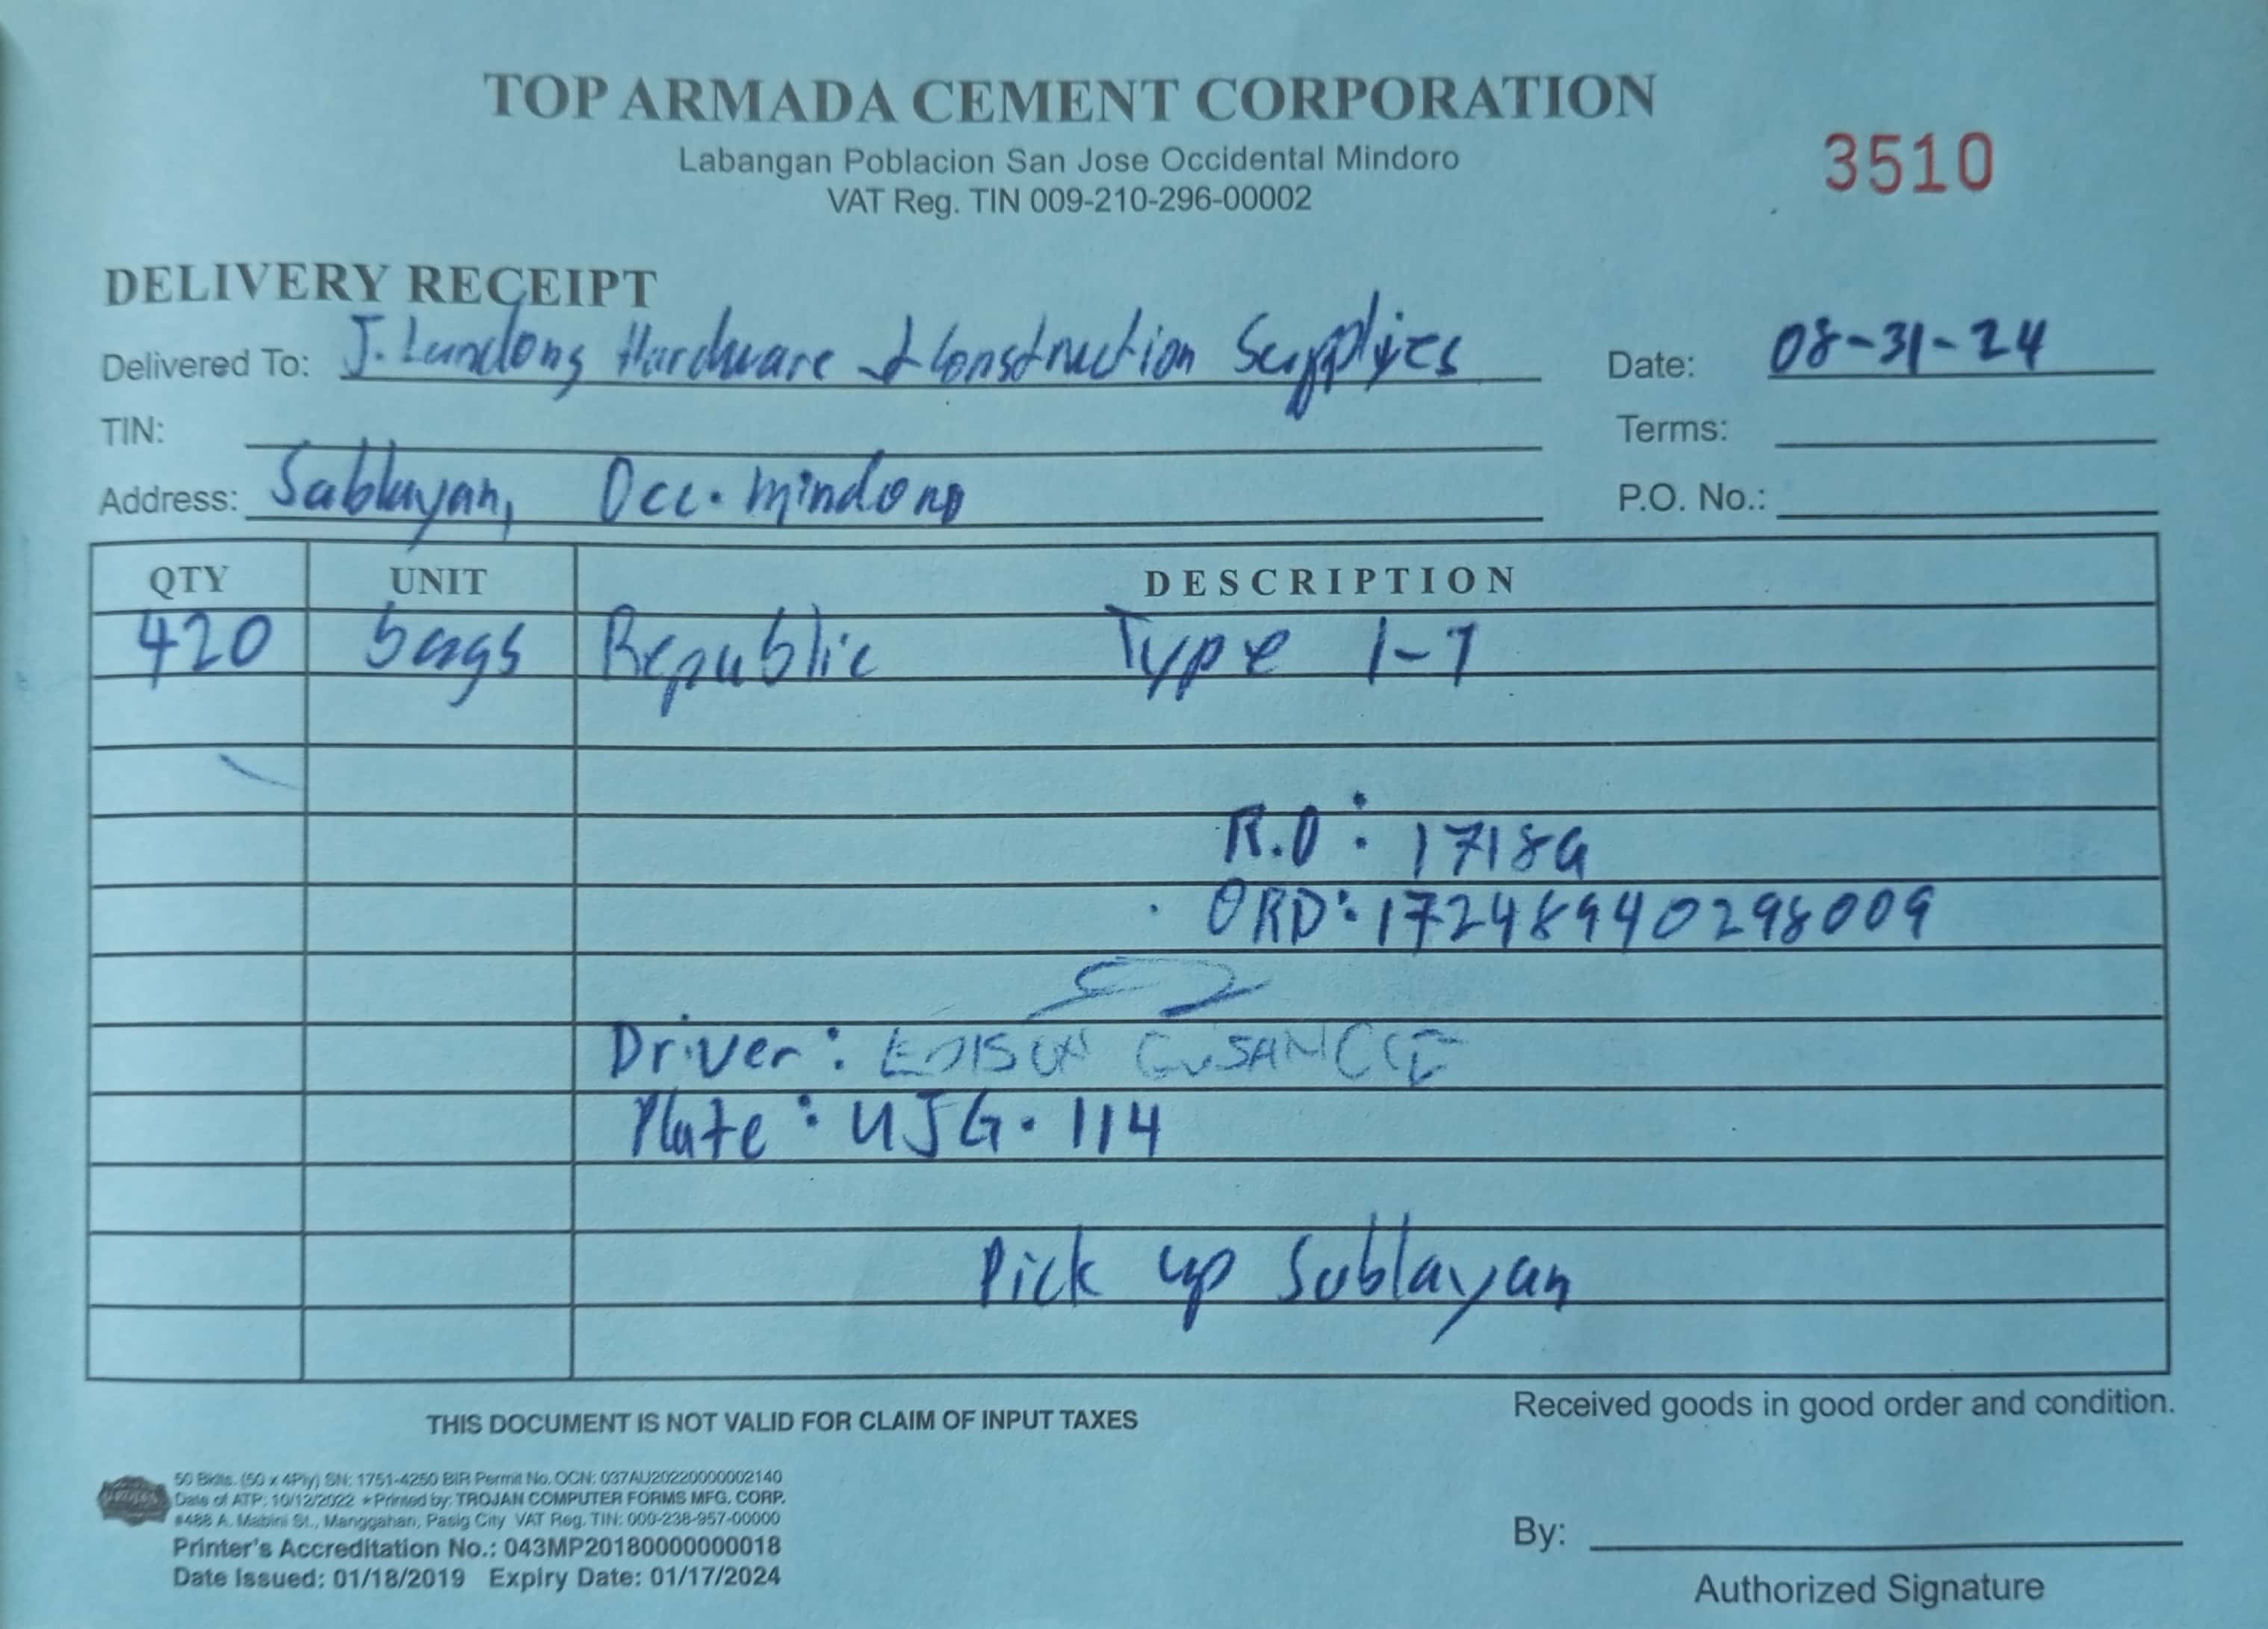 TOP ARMADA CEMENT CORPORATION
Labangan Poblacion San Jose Occidental Mindoro
3510
VAT Reg. TIN 009-210-296-00002
DELIVERY RECEIPT
Delivered To: J. Lundong Hardware & Construction Supplies Date: 08-31-24
TIN: Terms:
Address: Sablayan, Occ. Mindoro P.O. No.:
QTY UNIT DESCRIPTION
420 bags Republic Type 1-T
R.O: 17189
ORD: 17248940298009
Driver: EDISON
Plate: UJG. 114
Pick up Sablayan
THIS DOCUMENT IS NOT VALID FOR CLAIM OF INPUT TAXES
Received goods in good order and condition.
50 Bklts. (50 x 4Ply) SN: 1751-4250 BIR Permit No. OCN: 037AU20220000002140
Date of ATP: 10/12/2022 * Printed by: TROJAN COMPUTER FORMS MFG. CORP.
#488 A. Mabini St., Manggahan, Pasig City VAT Reg. TIN: 000-238-957-00000
Printer's Accreditation No.: 043MP20180000000018
Date Issued: 01/18/2019 Expiry Date: 01/17/2024
By:
Authorized Signature